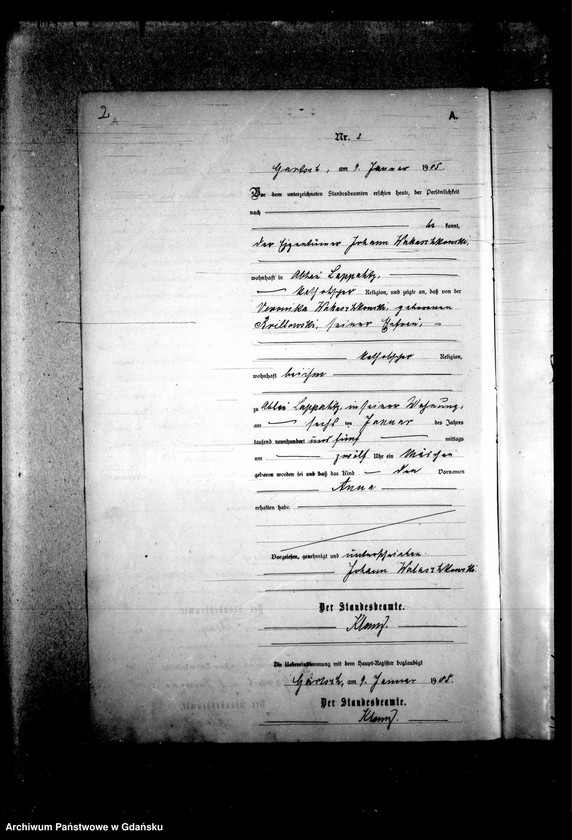 2
A.
Nr. 2
am 9. Januar 1905.
Vor dem unterzeichneten Standesbeamten erschien heute, der Persönlichkeit
nach
be kannt,
der Eigentümer Johann
wohnhaft in Abbau
katholischer Religion, und zeigte an, daß von der
Veronika geborenen
seiner Ehefrau,
katholischer Religion,
wohnhaft bei ihm
zu Abbau in seiner Wohnung,
am sechsten Januar des Jahres
tausend neunhundert und fünf mittags
um zwölf Uhr ein Mädchen
geboren worden sei und daß das Kind den Vornamen
Anna
erhalten habe.
Vorgelesen, genehmigt und unterschrieben
Johann
Der Standesbeamte.
Die Uebereinstimmung mit dem Haupt-Register beglaubigt
am 9. Januar 1905.
Der Standesbeamte.
Archiwum Państwowe w Gdańsku